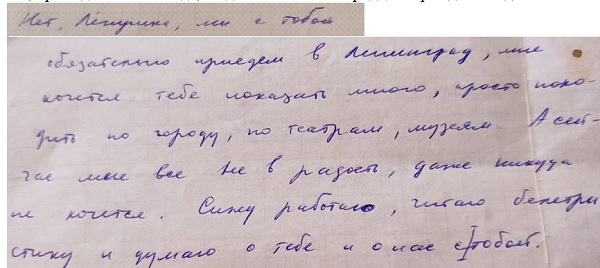 Нет, Лёнушка, мы с тобой
обязательно приедем в Ленинград, мне
хочется тебе показать много, просто похо-
дить по городу, по театрам, музеям. А сей-
час мне все не в радость, даже никуда
не хочется. Сижу работаю, читаю белетри
стику и думаю о тебе и о нас с тобой.